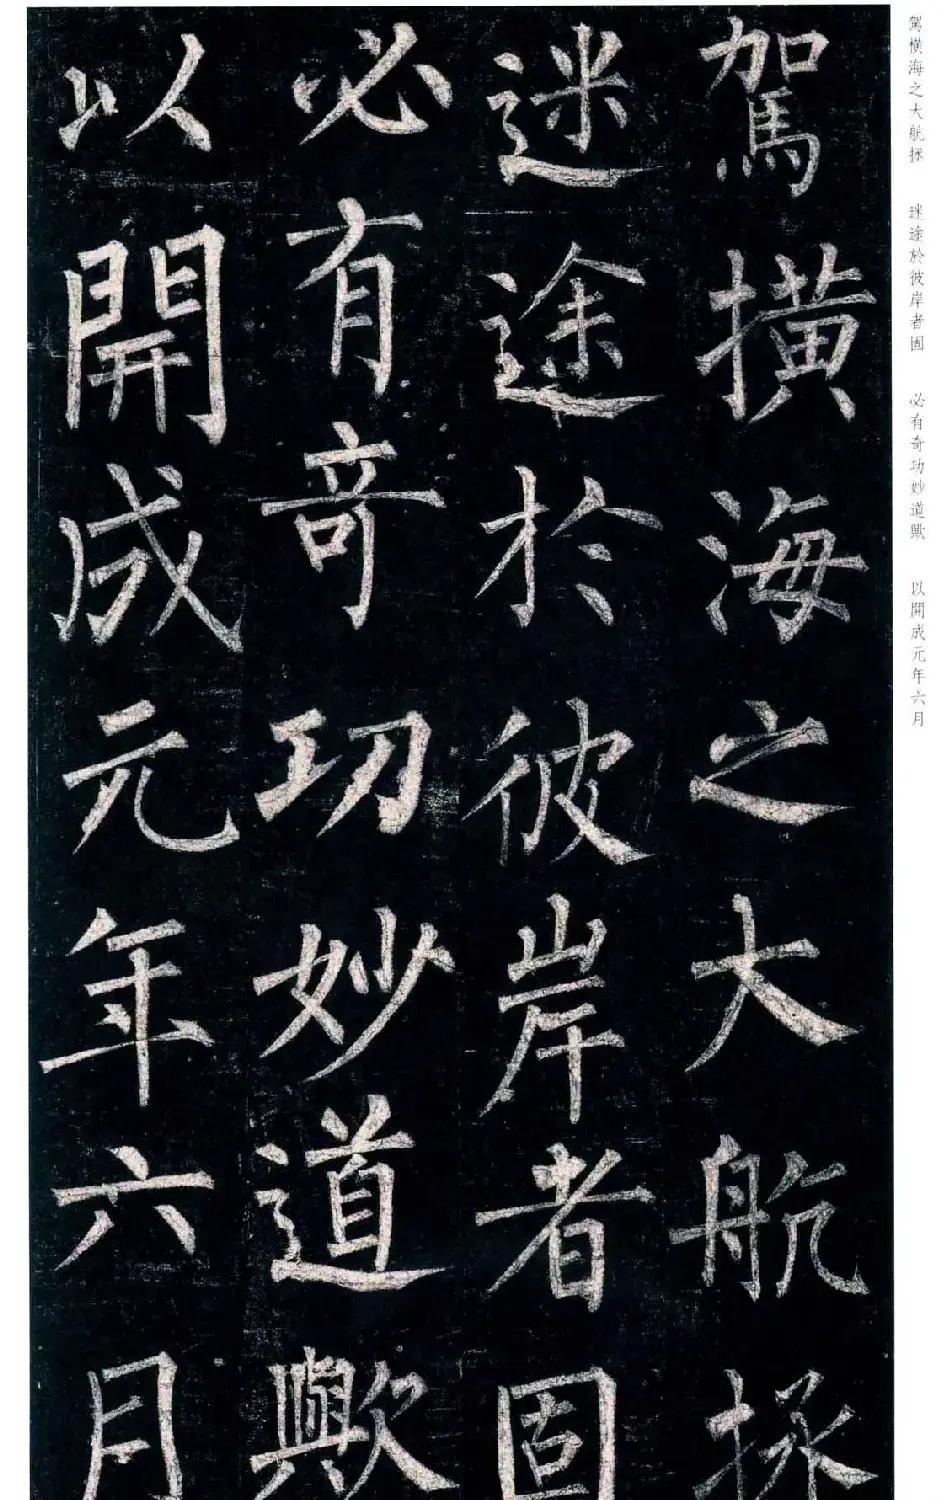 駕橫海之大航拯
迷途於彼岸者固
必有奇功妙道歟
以開成元年六月
駕橫海之大航拯 迷途於彼岸者固 必有奇功妙道歟 以開成元年六月